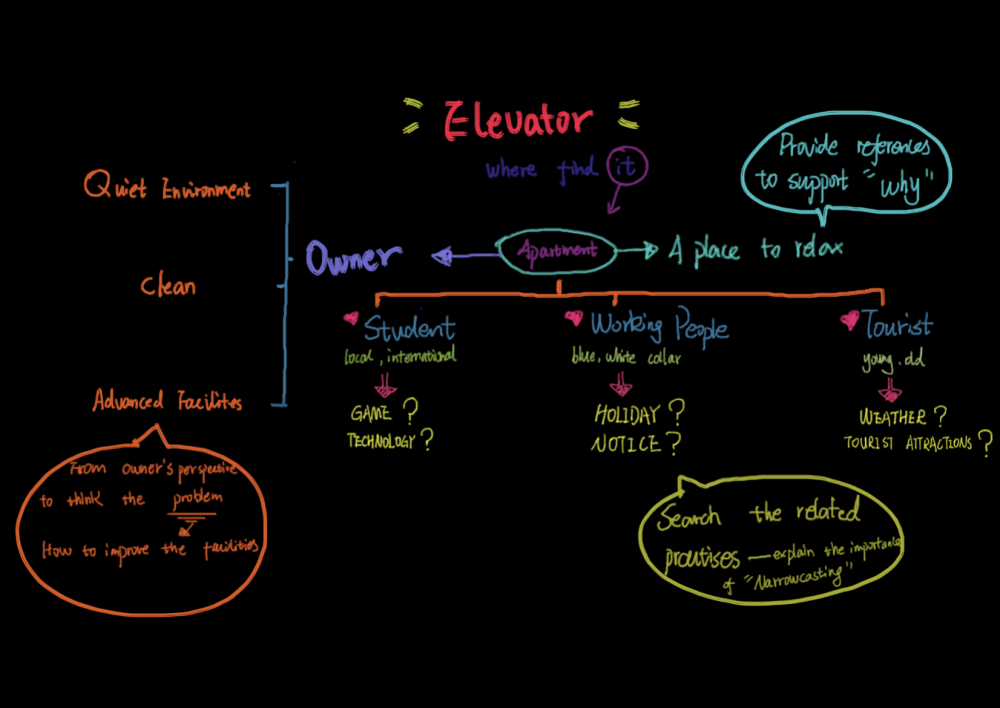 Elevator
where find it
Provide references
to support "why"
Quiet Environment
Owner
Apartment
A place to relax
Clean
Student
Working People
Tourist
local, international
blue, white collar
young, old
Advanced Facilites
GAME ?
TECHNOLOGY ?
HOLIDAY ?
NOTICE ?
WEATHER ?
TOURIST ATTRACTIONS ?
From owner's perspective
to think the problem
How to improve the facilities
Search the related
practises — explain the importance
of "Narrowcasting"